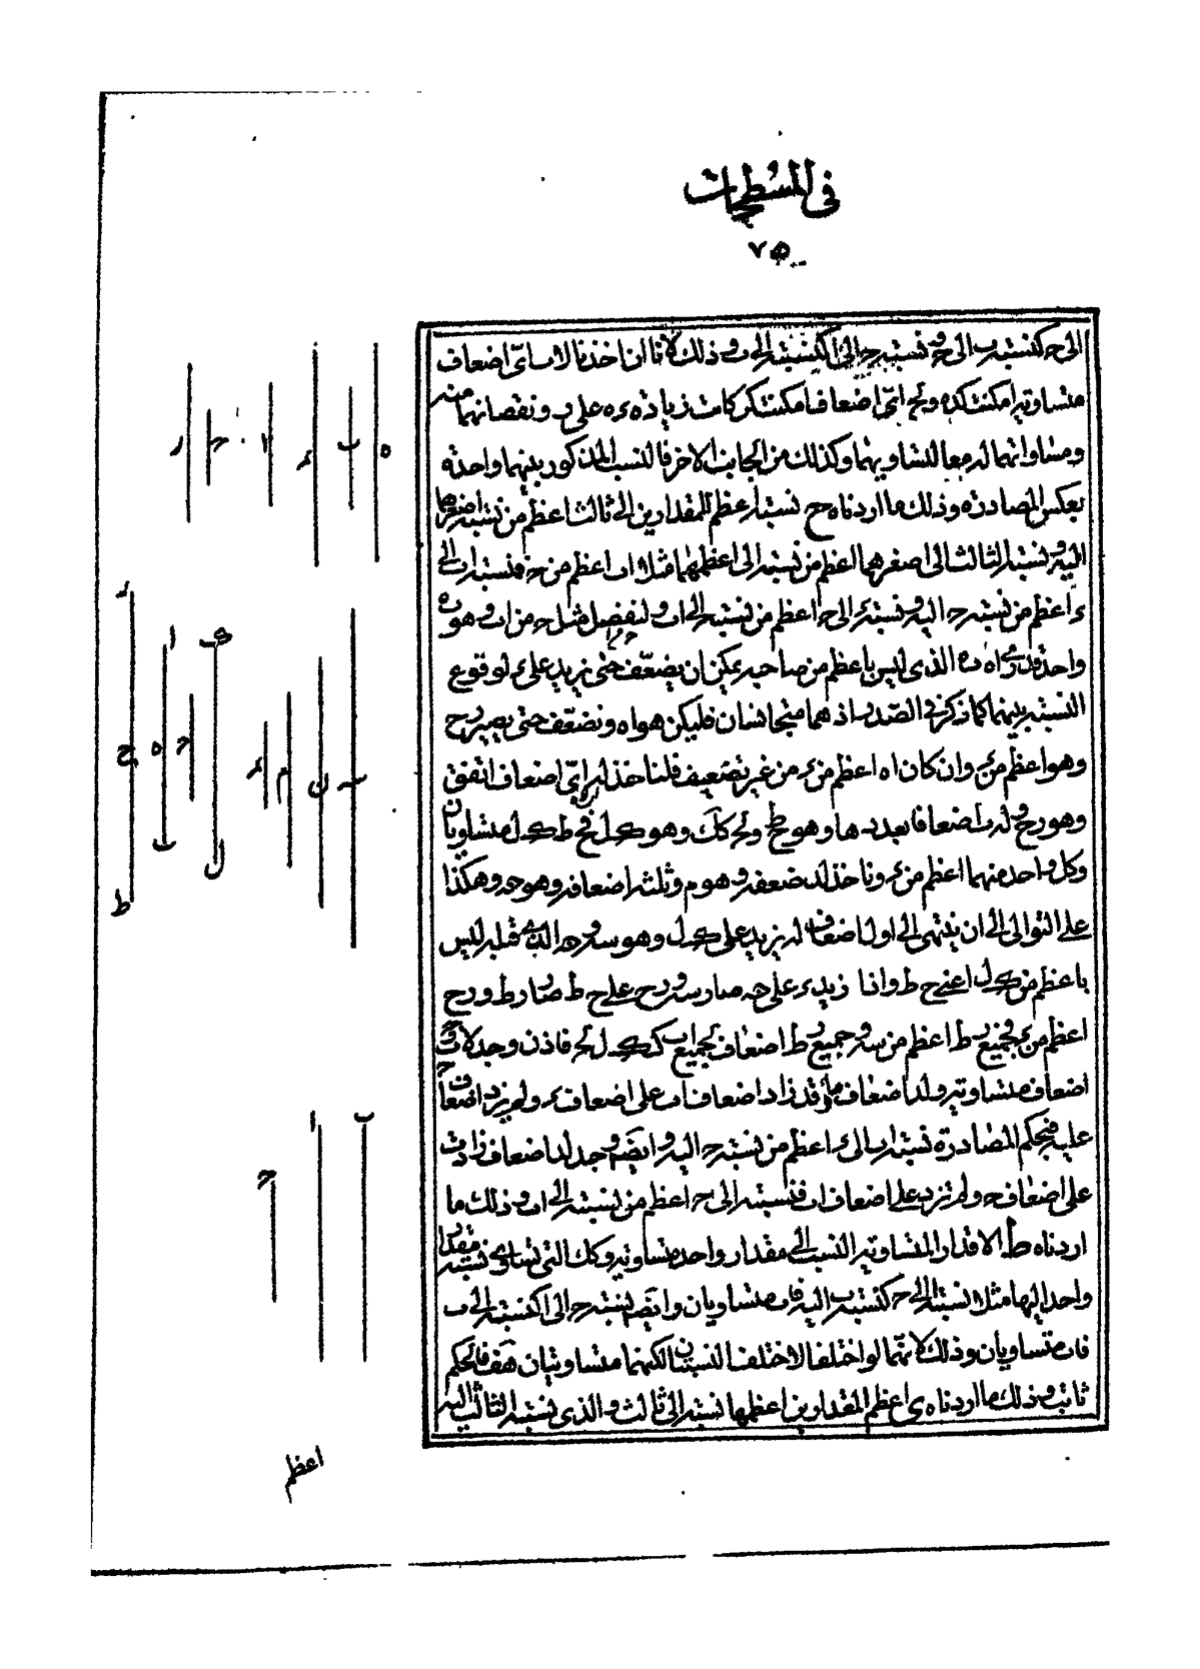 في المسطحات
٧٥
الى ح كنسبة ب الى ح ونسبة ح الى ا كنسبته الى ب وذلك لانا ان اخذنا لا ب اىّ اضعاف
متساوية امكنت كده ولح اىّ اضعاف امكنت كر كانت زيادة ء ه على ر ونقصانهما منه
ومساواتهما له معا لتساويهما وكذلك من الجانب الاخر فالنسب المذكور بينهما واحدة
بعكس المصادرة وذلك ما اردناه ح نسبة اعظم المقدارين الى ثالث اعظم من نسبة اصغرهما
اليه ونسبة الثالث الى اصغرهما اعظم من نسبته الى اعظمهما مثلا اب اعظم من ح فنسبة اب الى
ء اعظم من نسبة ح اليه ونسبة ء الى ح اعظم من نسبته الى اب ولنفصل مثل ح من اب وهو ه ب
واحد اه ه ب الذى ليس باعظم من صاحبه يمكن ان يضعّف حتى يزيد على ء لوقوع
النسبة بينهما كما ذكر فى الصدر اذ هما متجانسان فليكن هو اه ونضعّف حتى يصير رح
وهو اعظم من ء وان كان اه اعظم من ء من غير تضعيف فلناخذ له اىّ اضعاف اتفق
وهو رح وله ب اضعافا بعددها وهو ح ط ولح كك وهو ك ل فح ط ك ل متساويان
وكل واحد منهما اعظم من ء وناخذ لء ضعفه وهو م وثلثة اضعافه وهو ن وهكذا
على التوالى الى ان ينتهى الى اول اضعاف له يزيد على ك ل وهو س ون الذى قبله ليس
باعظم من ك ل اعنى ح ط واذا زيد ء على ن صار س ورح على ح ط صار ر ط ورح
اعظم من ء فجميع ر ط اعظم من س وجميع ر ط اضعاف لجميع اب ك ك ل لح فاذن وجد لاب وح
اضعاف متساوية ولء اضعاف ما قد زاد اضعاف اب على اضعاف ء ولم يزد اضعاف ح
عليه فبحكم المصادرة نسبة اب الى ء اعظم من نسبة ح اليه وايضا وجد لء اضعاف زادت
على اضعاف ح ولم تزد على اضعاف اب فنسبته الى ح اعظم من نسبته الى اب وذلك ما
اردناه ط الاقدار المتساوية النسب الى مقدار واحد متساوية وكك التى تساوى نسبة مقدار
واحد اليها مثلا نسبة ا الى ح كنسبة ب اليه فاب متساويان وايضا نسبة ح الى ا كنسبته الى ب
فاب متساويان وذلك لانهما لو اختلفا لاختلف النسبتان لكنهما متساويتان هف فالحكم
ثابت وذلك ما اردناه ى اعظم المقدارين اعظمها نسبة الى ثالث والذى نسبة الثالث اليه
اعظم
ه
ب
ء
ا
ح
ر
ء
ح
ط
ا
ه
ب
ح
ك
ل
ء
م
ن
س
ا
ب
ح